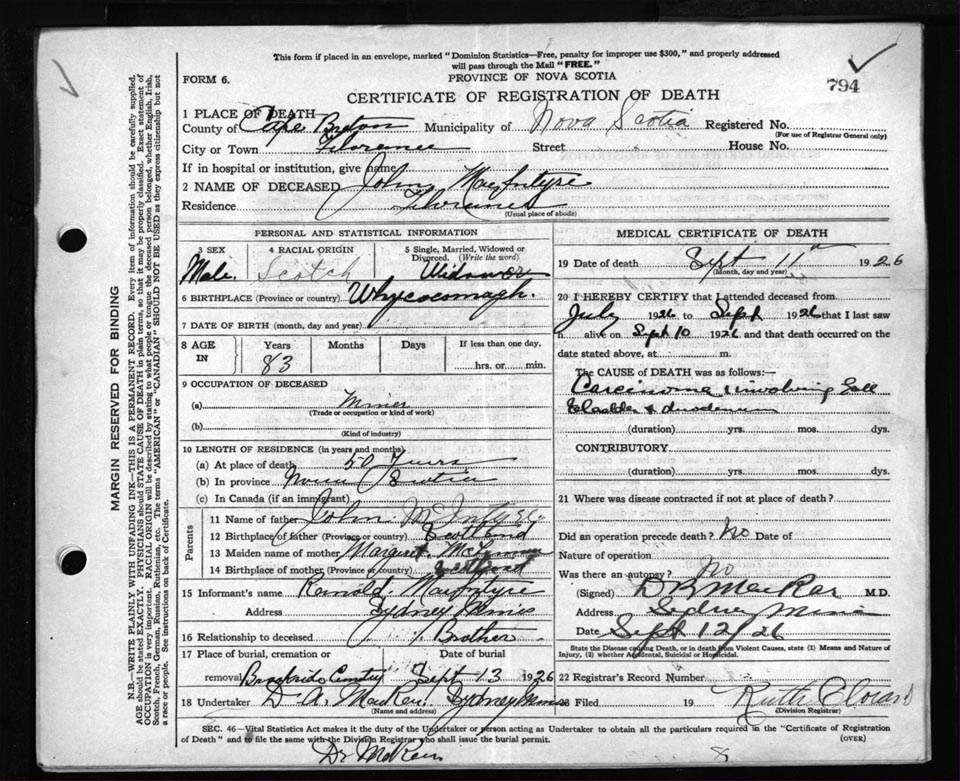 This form if placed in an envelope, marked "Dominion Statistics—Free, penalty for improper use $300," and properly addressed
will pass through the Mail "FREE."
FORM 6.
PROVINCE OF NOVA SCOTIA
794
CERTIFICATE OF REGISTRATION OF DEATH
1 PLACE OF DEATH—
County of Cape Breton Municipality of Nova Scotia Registered No.
(For use of Registrar General only)
City or Town Florence Street House No.
If in hospital or institution, give name
2 NAME OF DECEASED John MacIntyre
Residence Florence
(Usual place of abode)
PERSONAL AND STATISTICAL INFORMATION
3 SEX 4 RACIAL ORIGIN 5 Single, Married, Widowed or Divorced. (Write the word)
Male Scotch Widower
6 BIRTHPLACE (Province or country) Whycocomagh.
7 DATE OF BIRTH (month, day and year)
8 AGE IN Years Months Days If less than one day,
83 hrs. or min.
9 OCCUPATION OF DECEASED
(a) Miner
(Trade or occupation or kind of work)
(b)
(Kind of industry)
10 LENGTH OF RESIDENCE (in years and months)
(a) At place of death 50 Years
(b) In province Nova Scotia
(c) In Canada (if an immigrant)
Parents
11 Name of father John McIntyre
12 Birthplace of father (Province or country) Scotland
13 Maiden name of mother Margaret
14 Birthplace of mother (Province or country) Scotland
15 Informant's name Ronald MacIntyre
Address Sydney Mines
16 Relationship to deceased Brother
17 Place of burial, cremation or Date of burial
removal Brookside Cemetry Sept 13 1926
18 Undertaker D A. MacKen. Sydney Mines
MEDICAL CERTIFICATE OF DEATH
19 Date of death Sept 11th 1926
(Month, day and year)
20 I HEREBY CERTIFY that I attended deceased from
July 1926 to Sept 1926 that I last saw
h alive on Sept 10 1926 and that death occurred on the
date stated above, at m.
The CAUSE of DEATH was as follows:—
Carcinoma involving Gall
Bladder & duodenum
(duration) yrs. mos. dys.
CONTRIBUTORY.
(duration) yrs. mos. dys.
21 Where was disease contracted if not at place of death?
Did an operation precede death? No Date of
Nature of operation
Was there an autopsy? No
(Signed) M.D.
Address Sydney Mines
Date Sept 12/26
State the Disease causing Death, or in death from Violent Causes, state (1) Means and Nature of
Injury, (2) whether Accidental, Suicidal or Homicidal.
22 Registrar's Record Number
23 Filed 19 Ruth
(Division Registrar)
SEC. 46—Vital Statistics Act makes it the duty of the Undertaker or person acting as Undertaker to obtain all the particulars required in the "Certificate of Registration
of Death" and to file the same with the Division Registrar who shall issue the burial permit. (OVER)
Dr McKen
8
MARGIN RESERVED FOR BINDING
N.B.—WRITE PLAINLY WITH UNFADING INK—THIS IS A PERMANENT RECORD. Every item of information should be carefully supplied.
AGE should be stated EXACTLY. PHYSICIANS should STATE CAUSE OF DEATH in plain terms, so that it may be properly classified. Exact statement of
OCCUPATION is very important. RACIAL ORIGIN will be described by stating to what people or tongue the deceased person belonged, whether English, Irish,
Scotch, French, German, Russian, Ruthenian, etc. The terms "AMERICAN" or "CANADIAN" SHOULD NOT BE USED as they express citizenship but not
a race or people. See instructions on back of Certificate.